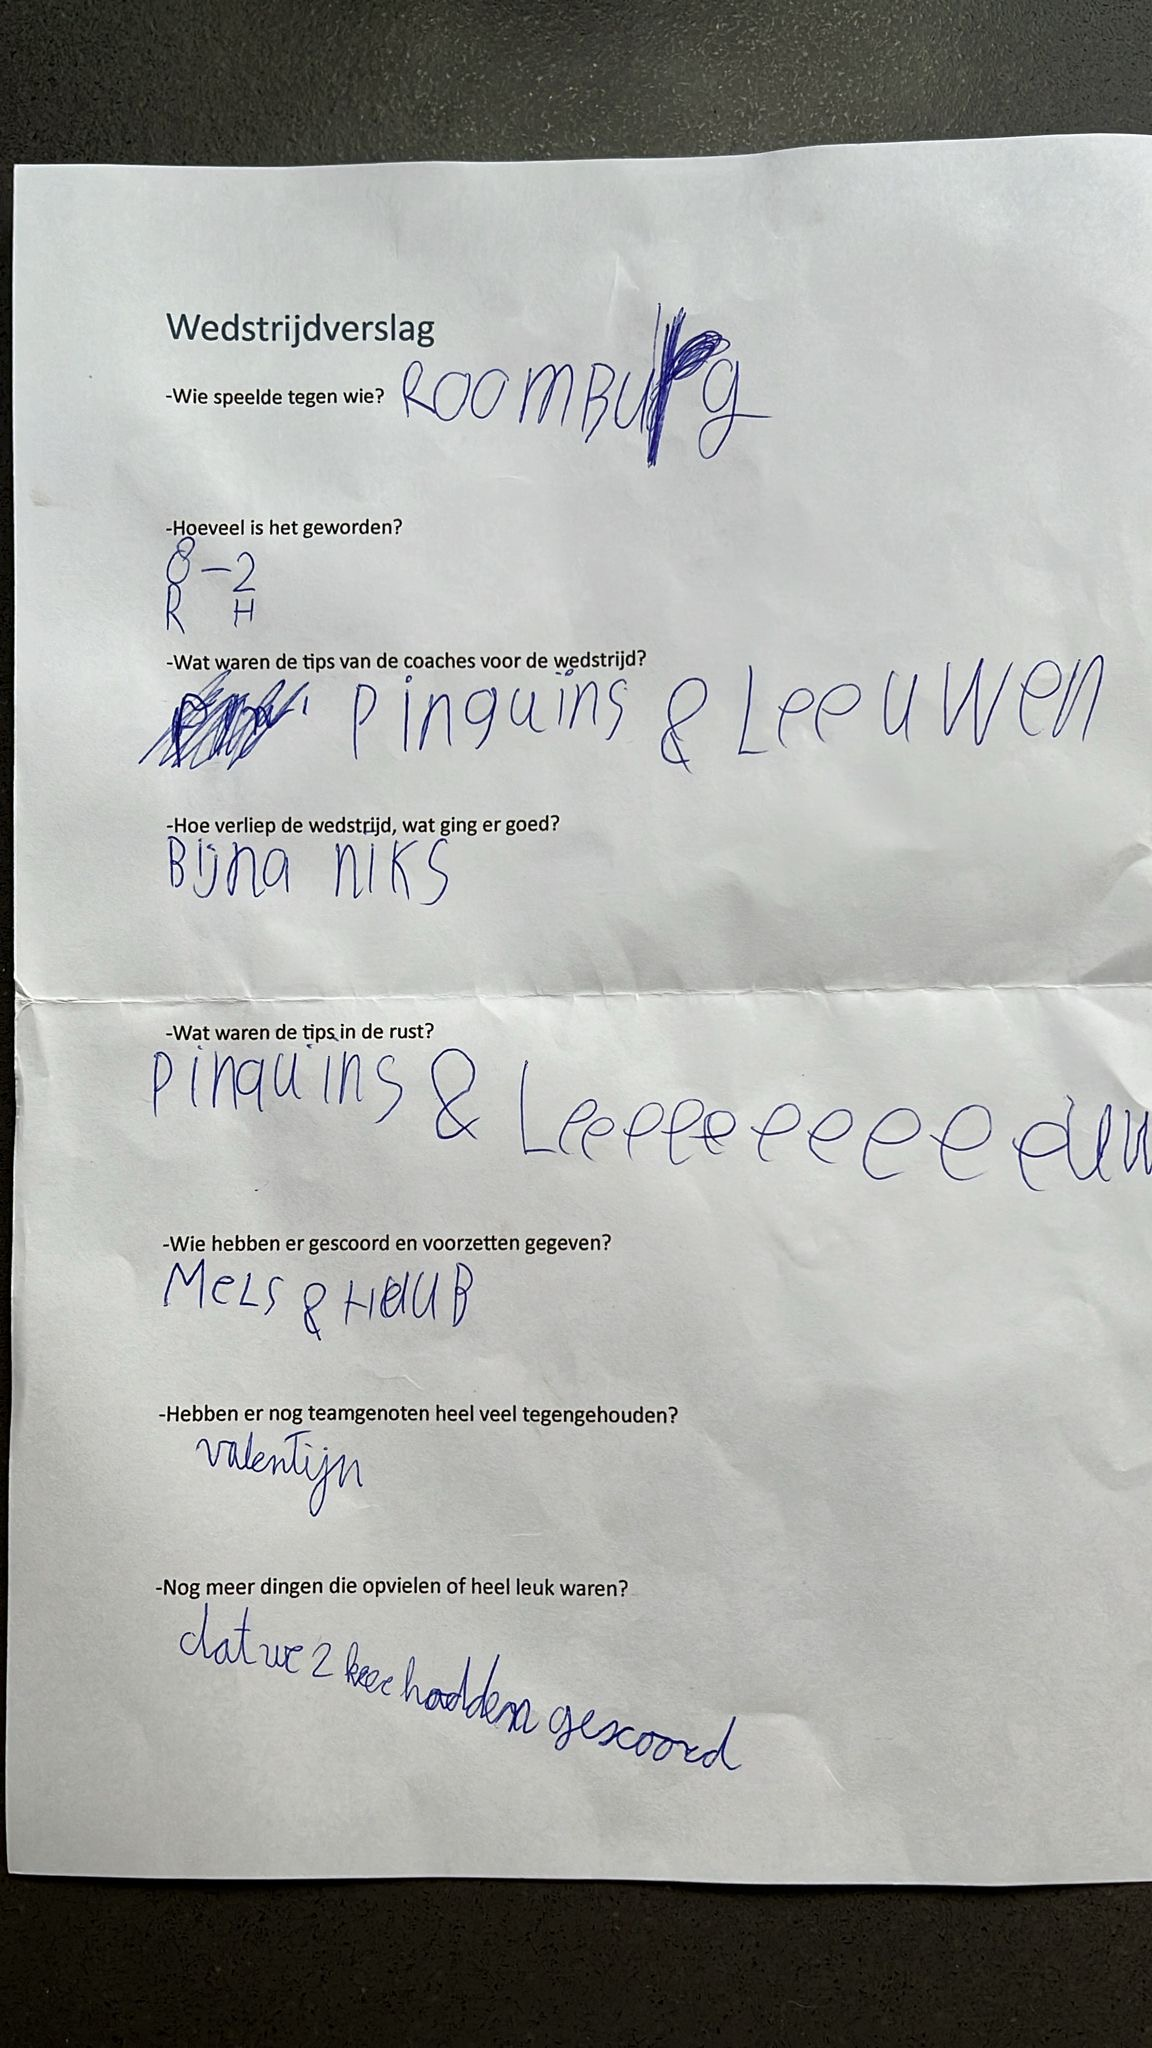 Wedstrijdverslag
-Wie speelde tegen wie? ROOMBURg
-Hoeveel is het geworden?
8-2
R H
-Wat waren de tips van de coaches voor de wedstrijd?
Pinquïns & Leeuwen
-Hoe verliep de wedstrijd, wat ging er goed?
Bijna niks
-Wat waren de tips in de rust?
pinquïns &
-Wie hebben er gescoord en voorzetten gegeven?
MeLS &
-Hebben er nog teamgenoten heel veel tegengehouden?
valentijn
-Nog meer dingen die opvielen of heel leuk waren?
dat we 2 keer hadden gescoord